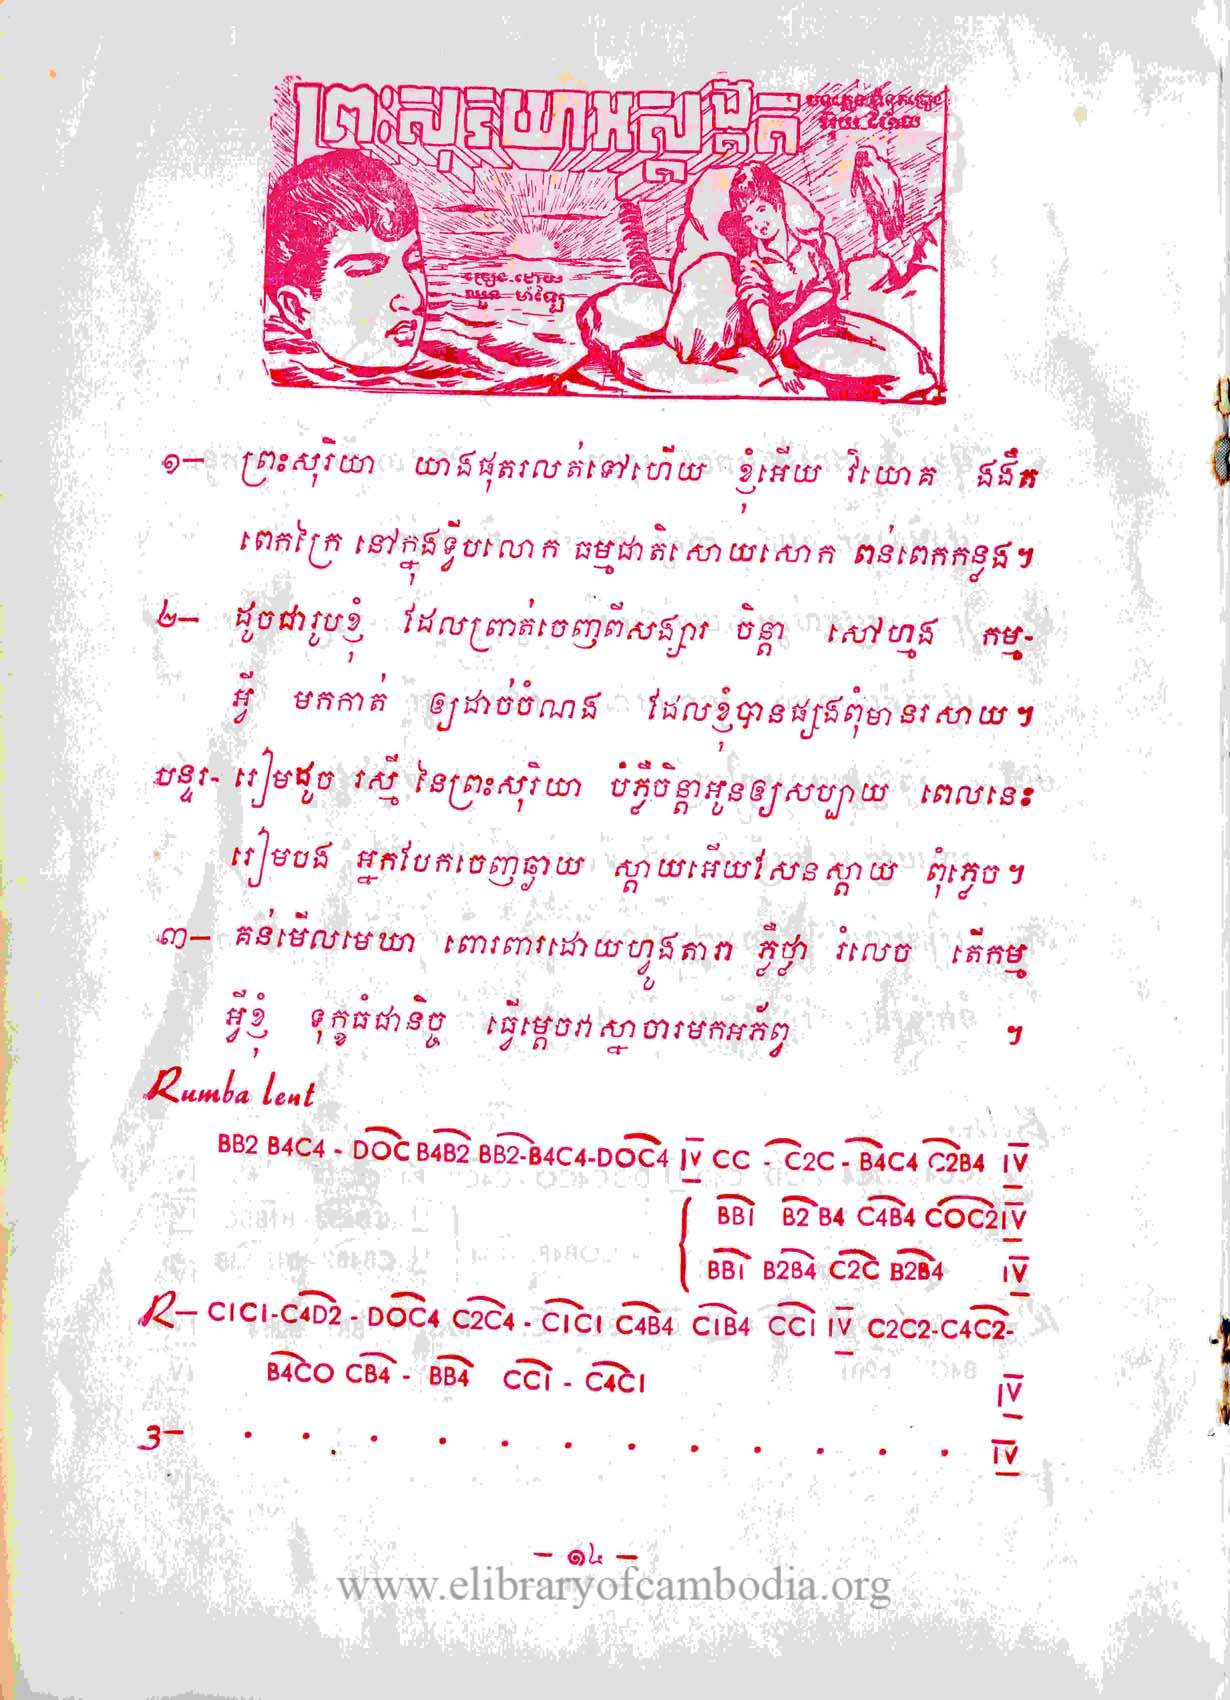 ព្រះសុរយាអស្តង្គត
ច្រៀងដោយ
ឈួន ម៉ាឡៃ
១— ព្រះសុរិយា យាងផុតរលត់ទៅហើយ ខ្ញុំអើយ វិយោគ ងងឹត
ពេកក្រៃ នៅក្នុងទ្វីបលោក ធម្មជាតិសោយសោក ពន់ពេកកន្លង។
២— ដូចជារូបខ្ញុំ ដែលព្រាត់ចេញពីសង្សារ ចិន្តា សៅហ្មង កម្ម-
អ្វី មកកាត់ ឲ្យដាច់ចំណង ដែលខ្ញុំបានផ្សងពុំមានរសាយ។
បន្ទរ- រៀមដូច រស្មី នៃព្រះសុរិយា បំភ្លឺចិន្តាអូនឲ្យសប្បាយ ពេលនេះ
រៀមបង អ្នកបែកចេញឆ្ងាយ ស្តាយអើយសែនស្តាយ ពុំភ្លេច។
៣— គន់មើលមេឃា ពោរពារដោយហ្វូងតារា ភ្លឺថ្លា រំលេច តើកម្ម
អ្វីខ្ញុំ ទុក្ខធំជានិច្ច ធ្វើម្តេចវាស្នាចារមកអភ័ព្វ ។
Rumba lent
BB2 B4C4 - DOC B4B2 BB2-B4C4-DOC4 IV CC - C2C - B4C4 C2B4 IV
BB1 B2B4 C4B4 COC2 IV
BB1 B2B4 C2C B2B4 IV
R— C1C1-C4D2 - DOC4 C2C4 - C1C1 C4B4 C1B4 CC1 IV C2C2-C4C2-
B4CO CB4 - BB4 CC1 - C4C1 IV
3— . . . . . . . . . . . . IV
— ១៤ —
www.elibraryofcambodia.org